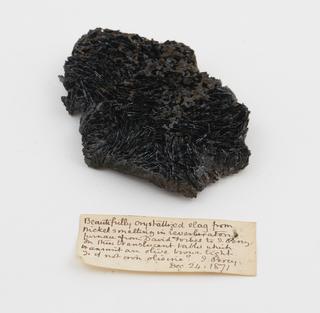 Beautifully crystallized slag from
Nickel smelting in reverberatory
furnace from David Forbes to J. Percy
In thin translucent tables which
transmit an olive brown light
Is it not iron olivine? J. Percy.
Dec. 24. 1871